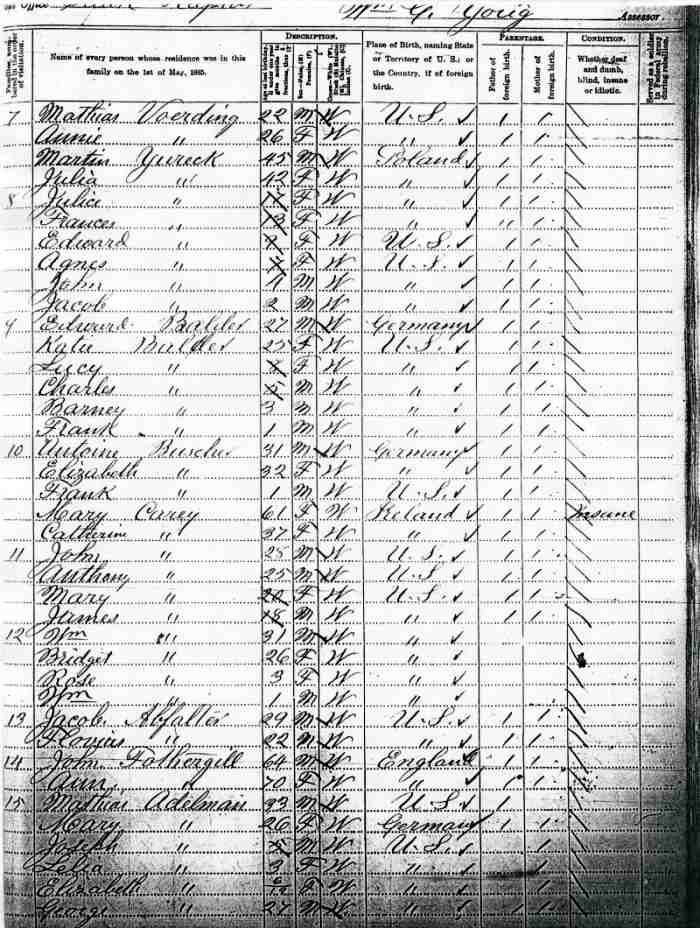 Wm G. Yorig Assessor.
Families, numbered in the order of visitation.
Name of every person whose residence was in this family on the 1st of May, 1885.
DESCRIPTION.
Sex—Males, (M) Females, (F)
Place of Birth, naming State or Territory of U. S.; or the Country, if of foreign birth.
PARENTAGE.
Father of foreign birth.
Mother of foreign birth.
CONDITION.
Whether deaf and dumb, blind, insane or idiotic.
Served as a soldier in Federal army during rebellion.
7 Mathias Voerding 22 M W U. S. 1 1
Annie " 26 F W " 1 1
Martin Yureck 45 M W Poland 1 1
Julia " 42 F W " 1 1
8 Julice " F W " 1 1
Frances " 13 F W " 1 1
Edward " F W U. S. 1 1
Agnes " F W U. S. 1 1
John " M W " 1 1
Jacob " 2 M W " 1 1
9 Edward Balder 27 M W Germany 1 1
Katie Balder 25 F W U. S. 1 1
Lucy " F W " 1 1
Charles " 5 M W " 1 1
Barney " 3 M W " 1 1
Frank " 1 M W " 1 1
10 Antoine Buscher 31 M W Germany 1 1
Elizabeth " 32 F W " 1 1
Frank " 1 M W U. S. 1 1
Mary Carey 61 F W Ireland 1 1 Insane
Catherine " 37 F W " 1 1
11 John " 28 M W U. S. 1 1
Anthony " 25 M W U. S. 1 1
Mary " 20 F W U. S. 1 1
James " 18 M W " 1 1
12 Wm " 31 M W "
Bridget " 26 F W "
Rose " 3 F W "
Wm " 1 M W "
13 Jacob Abfalter 29 M W U. S. 1 1
" 22 M W " 1 1
14 John Fothergill 64 M W England 1 1
Ann " 70 F W " 1 1
15 Mathias Adelman 33 M W U S 1
Mary " 26 F W Germany 1 1
Joseph " 5 M W U. S. 1
" 3 F W " 1
Elizabeth " F W " 1
George " 27 M W " 1 1